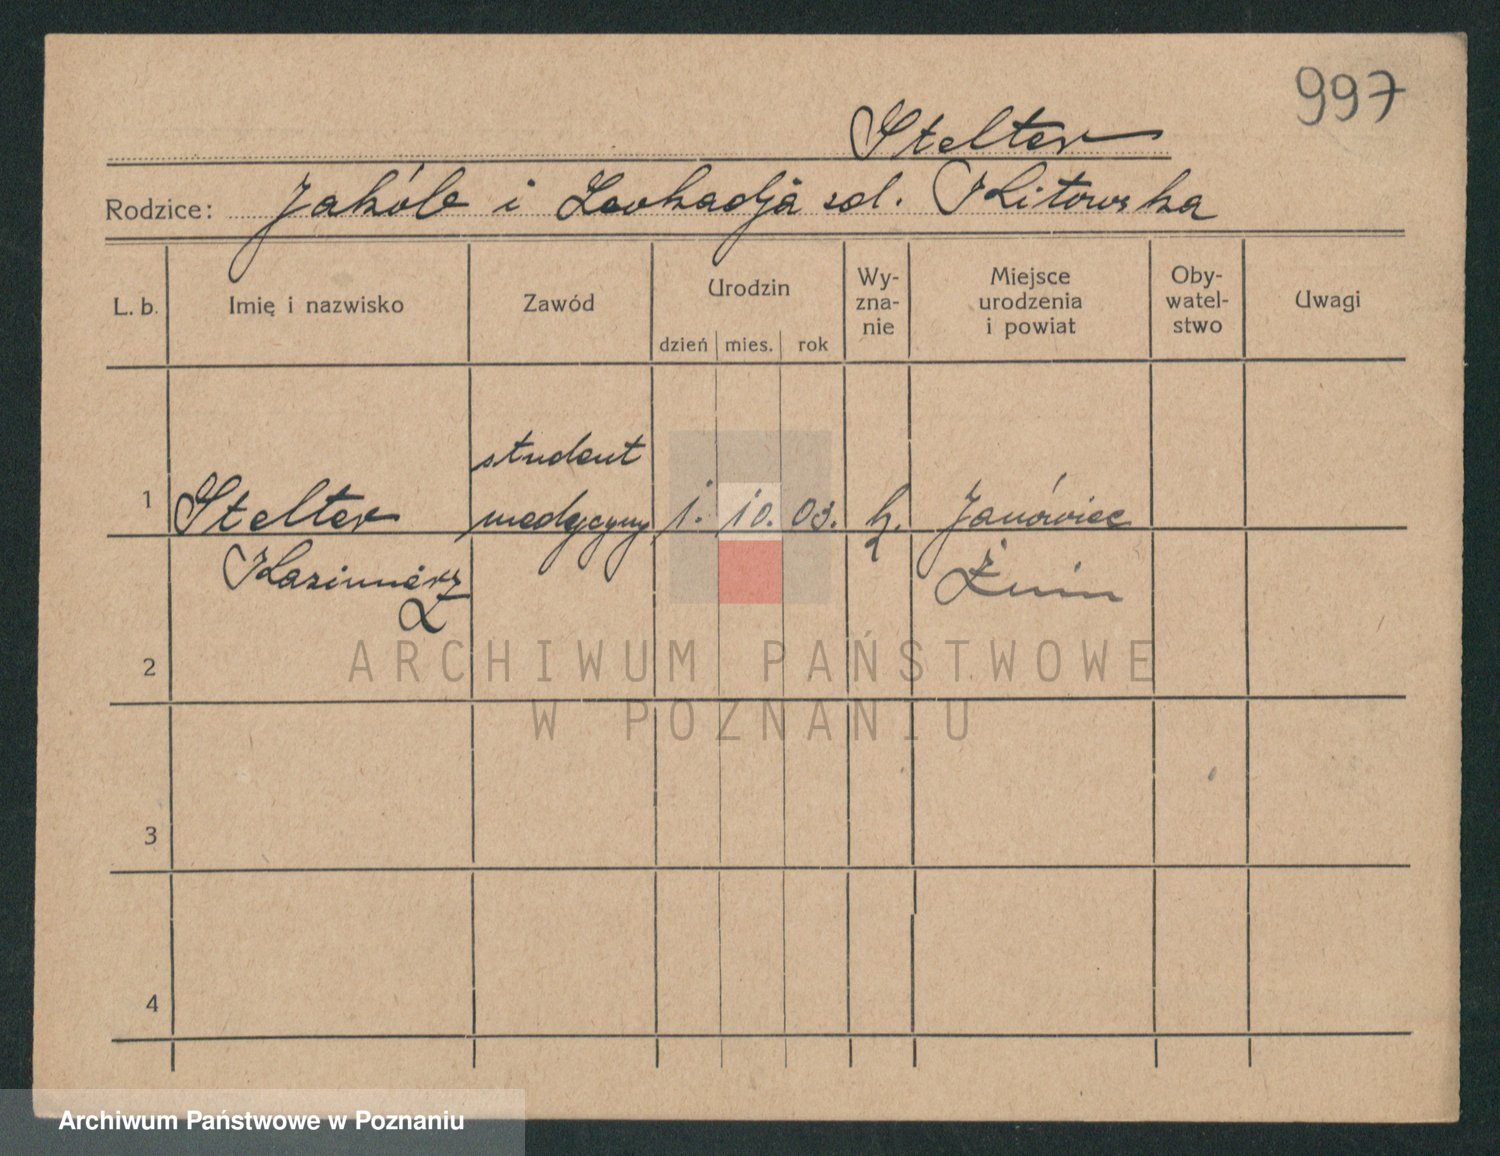 997
Stelter
Rodzice: Jakób i Leokadja zd. Kitowska
L. b. Imię i nazwisko Zawód Urodzin dzień mies. rok Wy-zna-nie Miejsce urodzenia i powiat Oby-watel-stwo Uwagi
student
1 Stelter medycyny 1. 10. 03. k. Janówiec
Kazimierz Żnin
2
3
4
ARCHIWUM PAŃSTWOWE
W POZNANIU
Archiwum Państwowe w Poznaniu